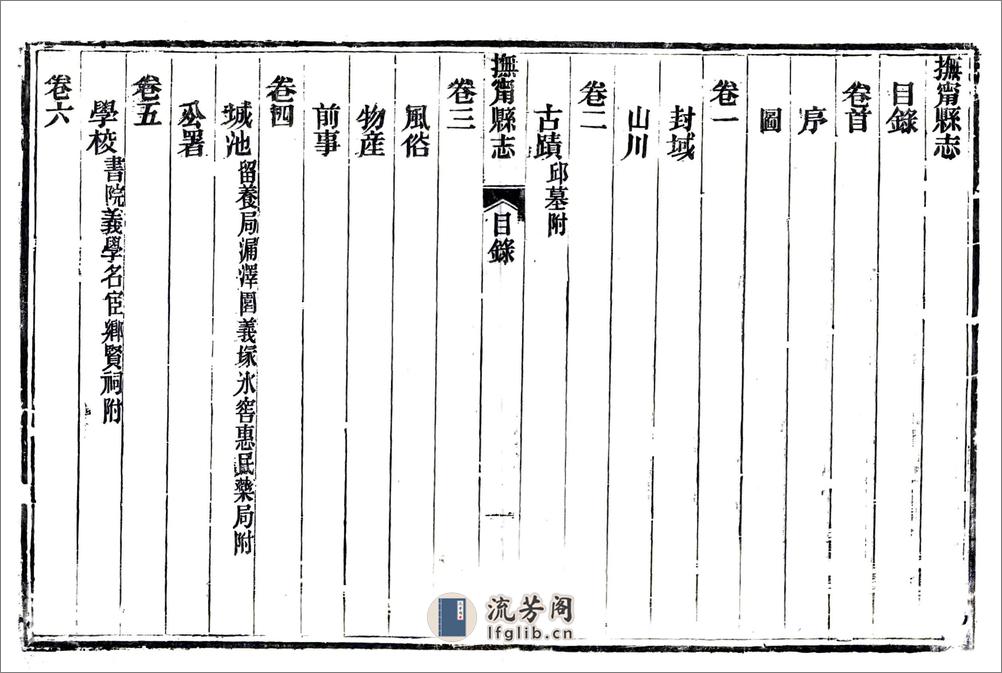 撫甯縣志
目錄
卷首
序
圖
卷一
封域
山川
卷二
古蹟邱墓附
撫甯縣志
目錄
一
卷三
風俗
物産
前事
卷四
城池留養局漏澤園義塚氷窖惠民藥局附
公署
卷五
學校書院義學名宦鄉賢祠附
卷六
流芳阁
lfglib.cn